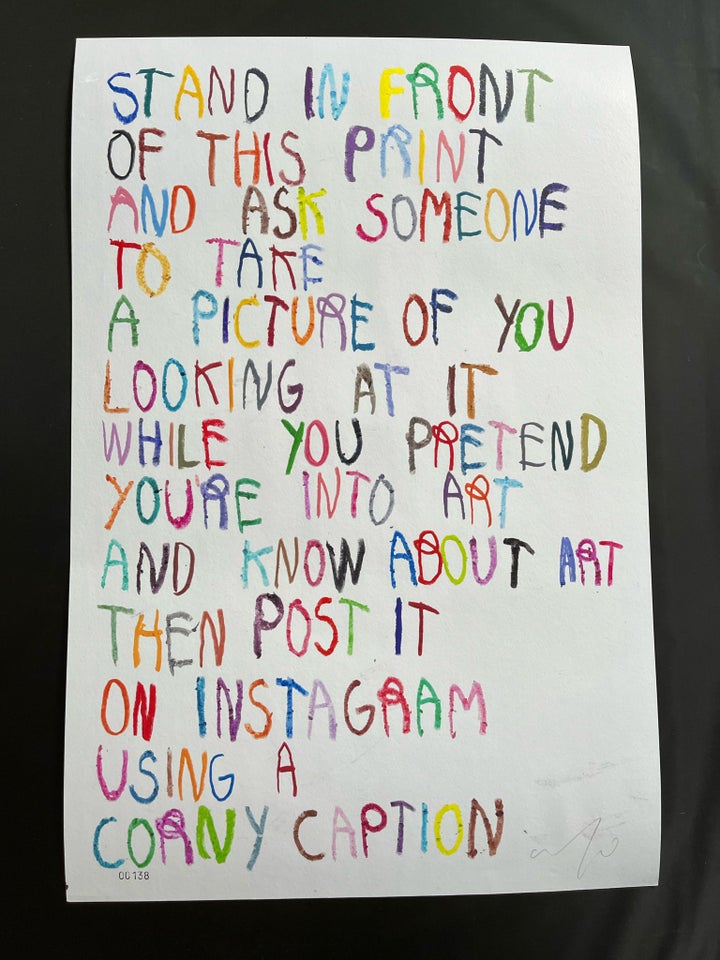 STAND IN FRONT
OF THIS PRINT
AND ASK SOMEONE
TO TAKE
A PICTURE OF YOU
LOOKING AT IT
WHILE YOU PRETEND
YOU'RE INTO ART
AND KNOW ABOUT ART
THEN POST IT
ON INSTAGRAM
USING A
CORNY CAPTION
00138